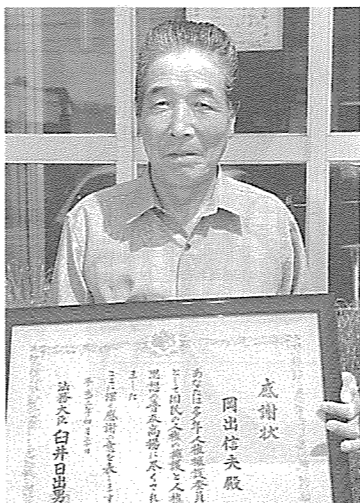 感謝状
岡出信夫殿
あなたは多年人権擁護委員
として国民の人権の擁護と人権
思想の普及高揚に尽くされ
ました
ここに深く感謝の意を表します
平成 年四月 日
法務大臣 臼井日出男